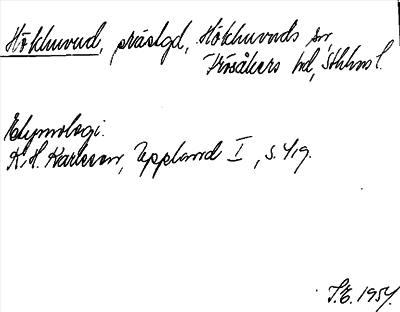 Hökhuvud, prästgd, Hökhuvuds sn,
Frösåkers hd, Sthlms l.
Etymologi.
K. H. Karlsson, Uppland I, s. 419.
S.E. 1954.